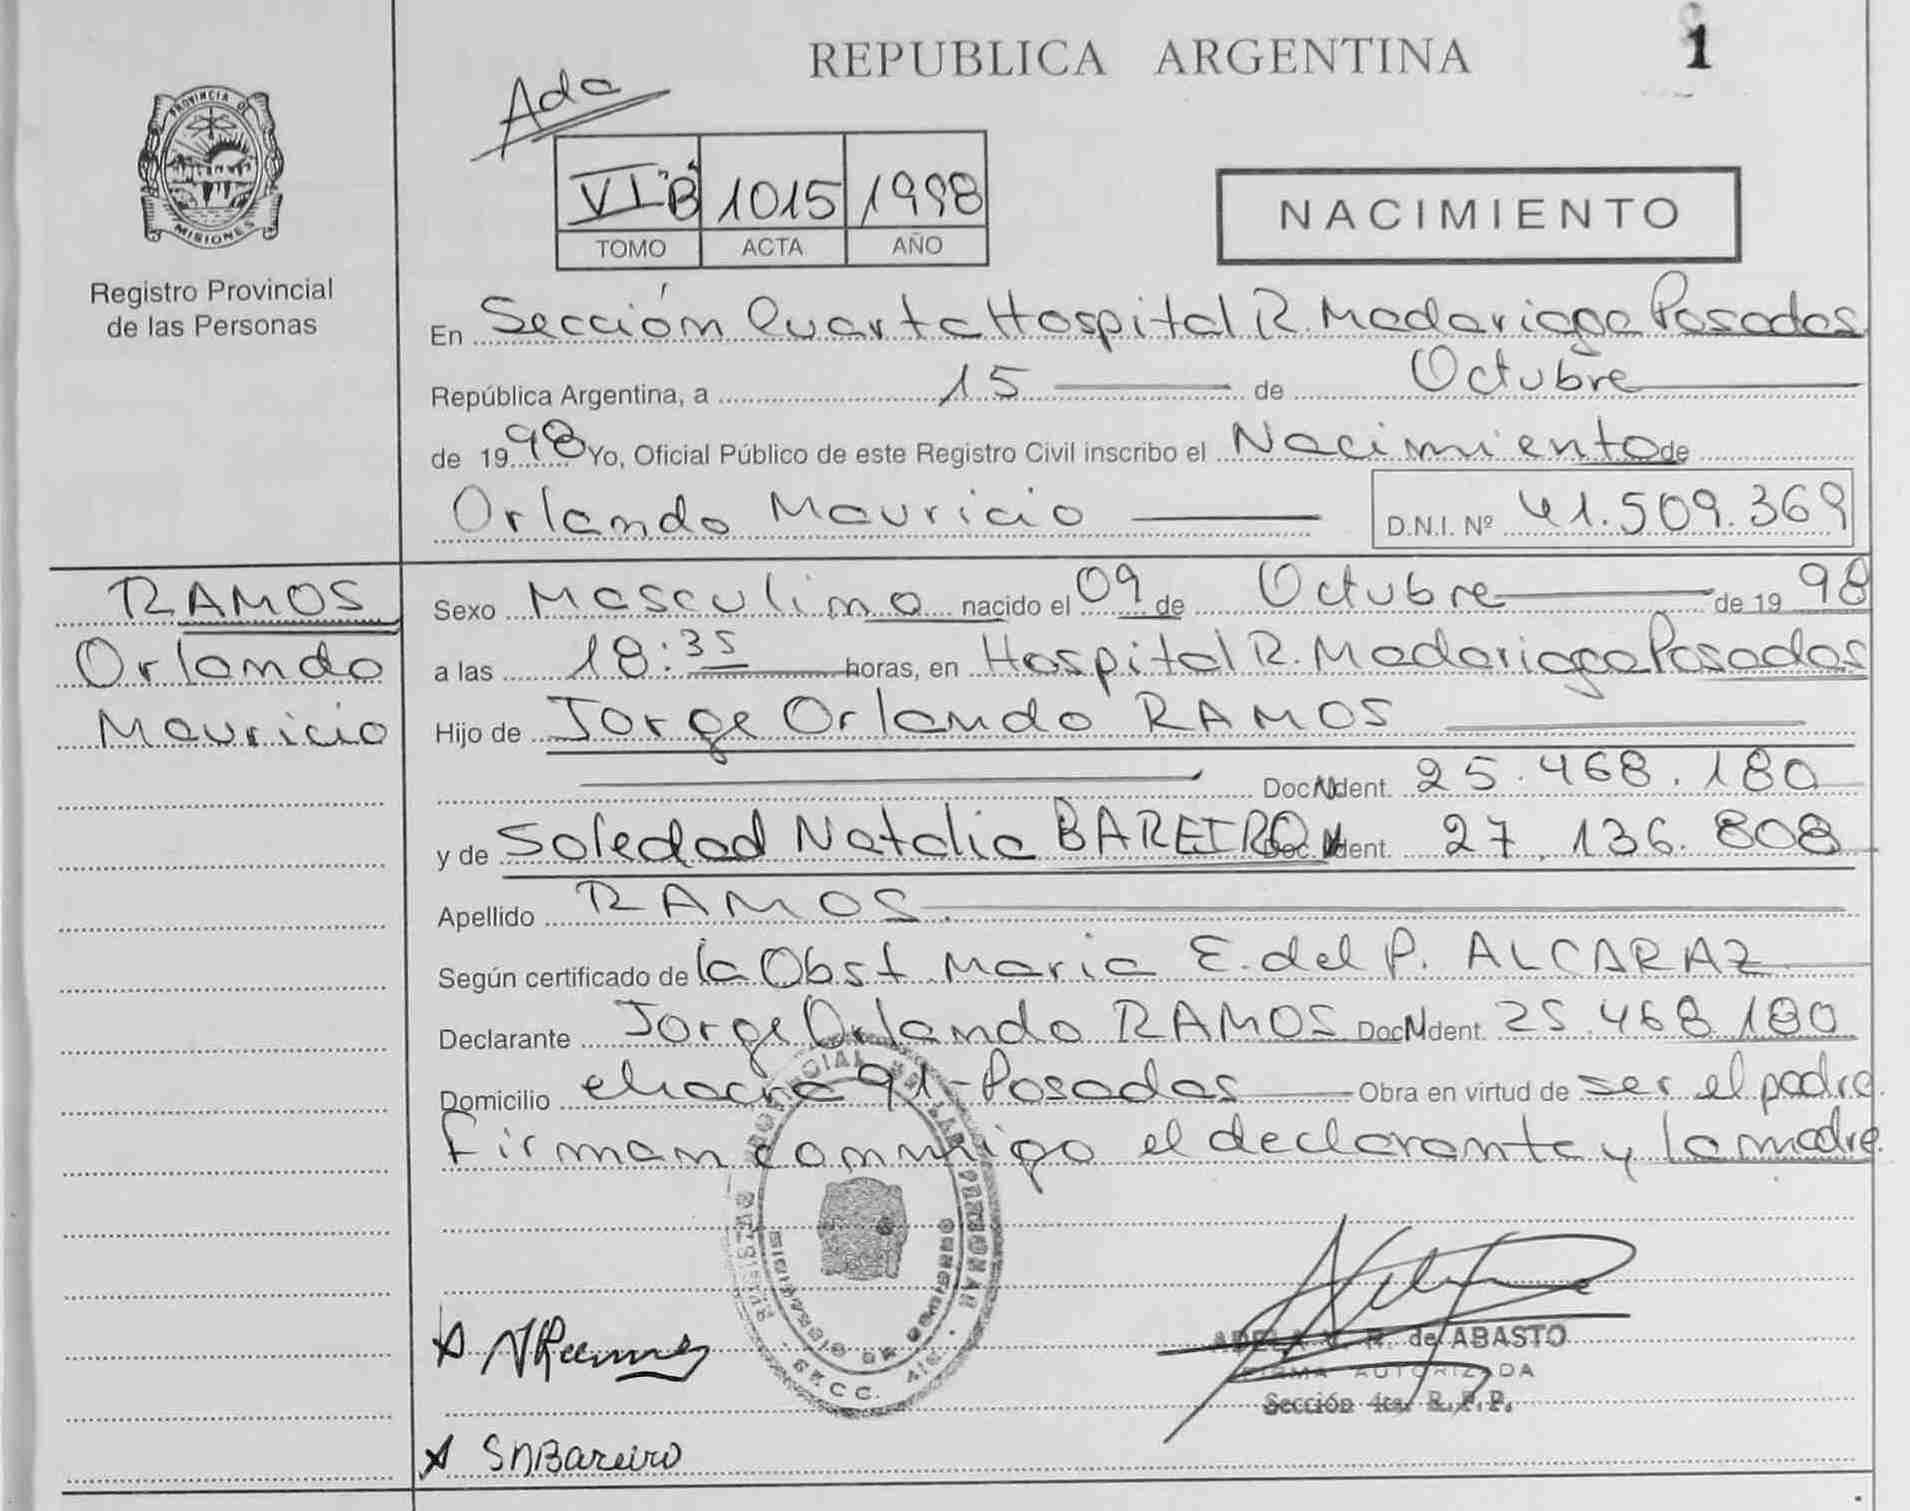 REPUBLICA ARGENTINA
1
Ada
VI "B" 1015 1998
TOMO ACTA AÑO
NACIMIENTO
PROVINCIA DE
MISIONES
Registro Provincial
de las Personas
En Sección Cuarta Hospital R. Madariaga Posadas
República Argentina, a 15 de Octubre
de 1998 Yo, Oficial Público de este Registro Civil inscribo el Nacimiento de
Orlando Mauricio D.N.I. Nº 41.509.369
RAMOS
Orlando
Mauricio
Sexo Masculino nacido el 09 de Octubre de 1998
a las 18:35 horas, en Hospital R. Madariaga Posadas
Hijo de Jorge Orlando RAMOS
Doc. Ident. 25.468.180
y de Soledad Natalia BAREIRO Doc. Ident. 27.136.808
Apellido RAMOS
Según certificado de la Obst Maria E. del P. ALCARAZ
Declarante Jorge Orlando RAMOS Doc. Ident. 25.468.180
Domicilio chacra 91 - Posadas Obra en virtud de ser el padre.
Firman conmigo el declarante y la madre.
SECC. 4ta.
ADELA de ABASTO
FIRMA AUTORIZADA
Sección 4ta. R. P. P.
SNBareiro